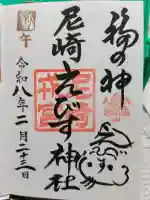 福の神
尼崎えびす神社
午
令和八年二月二十三日